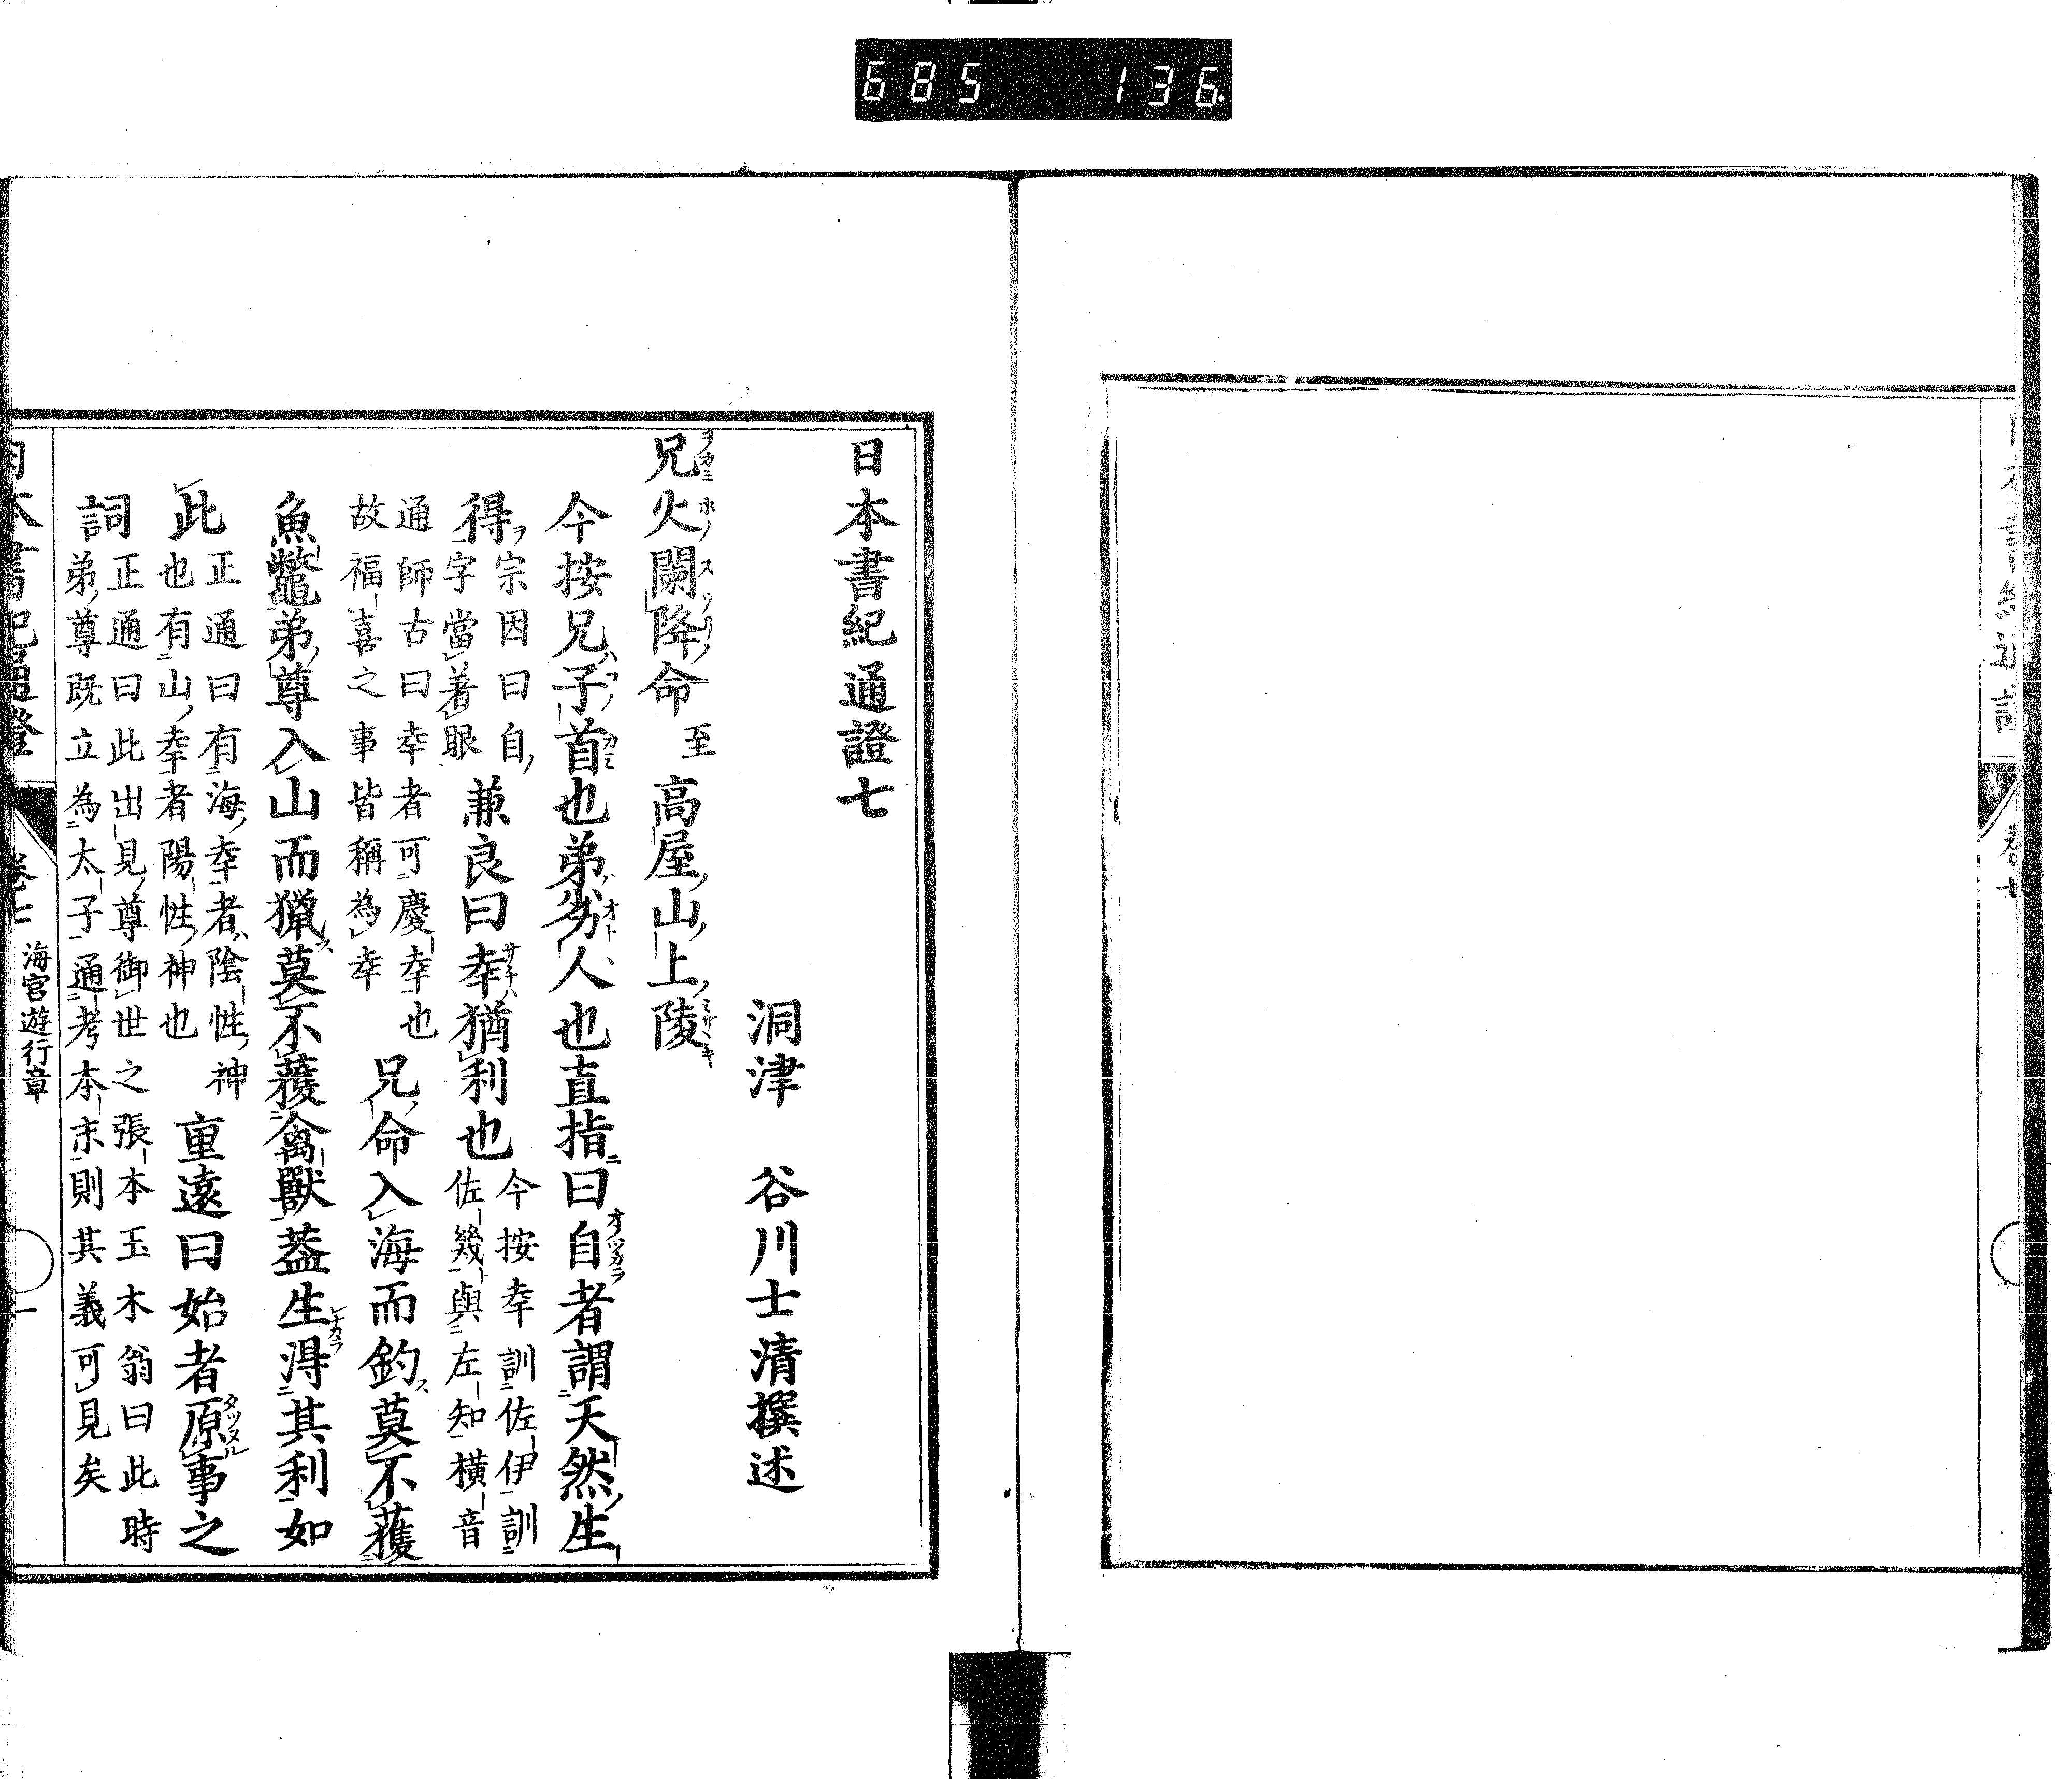 685 136
日本書紀通證七
洞津 谷川士清撰述
兄火闌降命至高屋山上陵
今按兄子首也弟劣人也直指曰自者謂天然生
得宗因曰自字當著眼兼良曰幸猶利也今按幸訓佐伊訓佐幾與左知橫音
通師古曰幸者可慶幸也故福喜之事皆稱為幸兄命入海而釣莫不獲
魚鼈弟尊入山而獵莫不獲禽獸蓋生得其利如
此正通曰有海幸者陰性神也有山幸者陽性神也重遠曰始者原事之
詞正通曰此出見尊御世之張本玉木翁曰此時弟尊既立為太子通考本末則其義可見矣
日本書紀通證 卷七 海宮遊行章 一